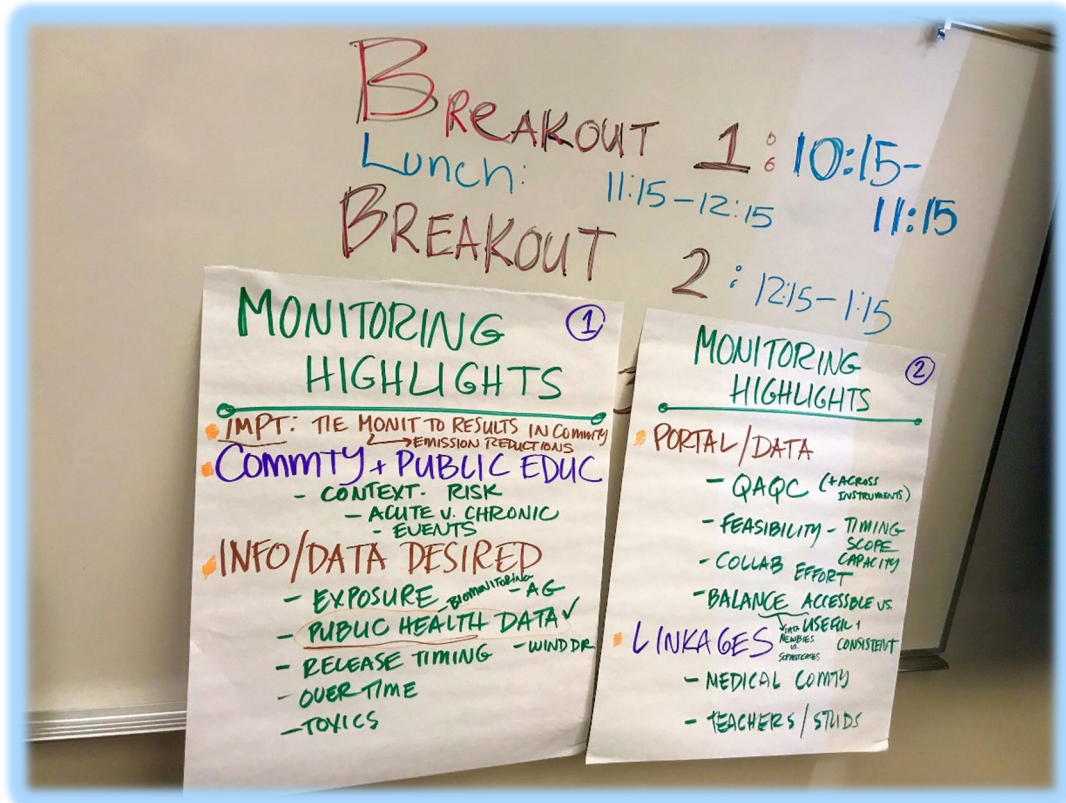 BREAKOUT 1: 10:15-
11:15
Lunch: 11:15-12:15
BREAKOUT 2: 12:15-1:15
MONITORING ①
HIGHLIGHTS
IMPT: TIE MONIT TO RESULTS IN COMMTY
EMISSION REDUCTIONS
COMMTY + PUBLIC EDUC
- CONTEXT. RISK
- ACUTE V. CHRONIC
- EVENTS
INFO/DATA DESIRED
- EXPOSURE - BIOMONITORING - AG
- PUBLIC HEALTH DATA ✓
- RELEASE TIMING - WIND DR
- OVER TIME
- TOXICS
MONITORING ②
HIGHLIGHTS
PORTAL/DATA
- QAQC (+ ACROSS
INSTRUMENTS)
- FEASIBILITY - TIMING
SCOPE
CAPACITY
- COLLAB EFFORT
- BALANCE ACCESSIBLE VS.
USEFUL +
CONSISTENT
DATA
NEWBIES
VS.
LINKAGES
- MEDICAL COMTY
- TEACHERS/STUDS